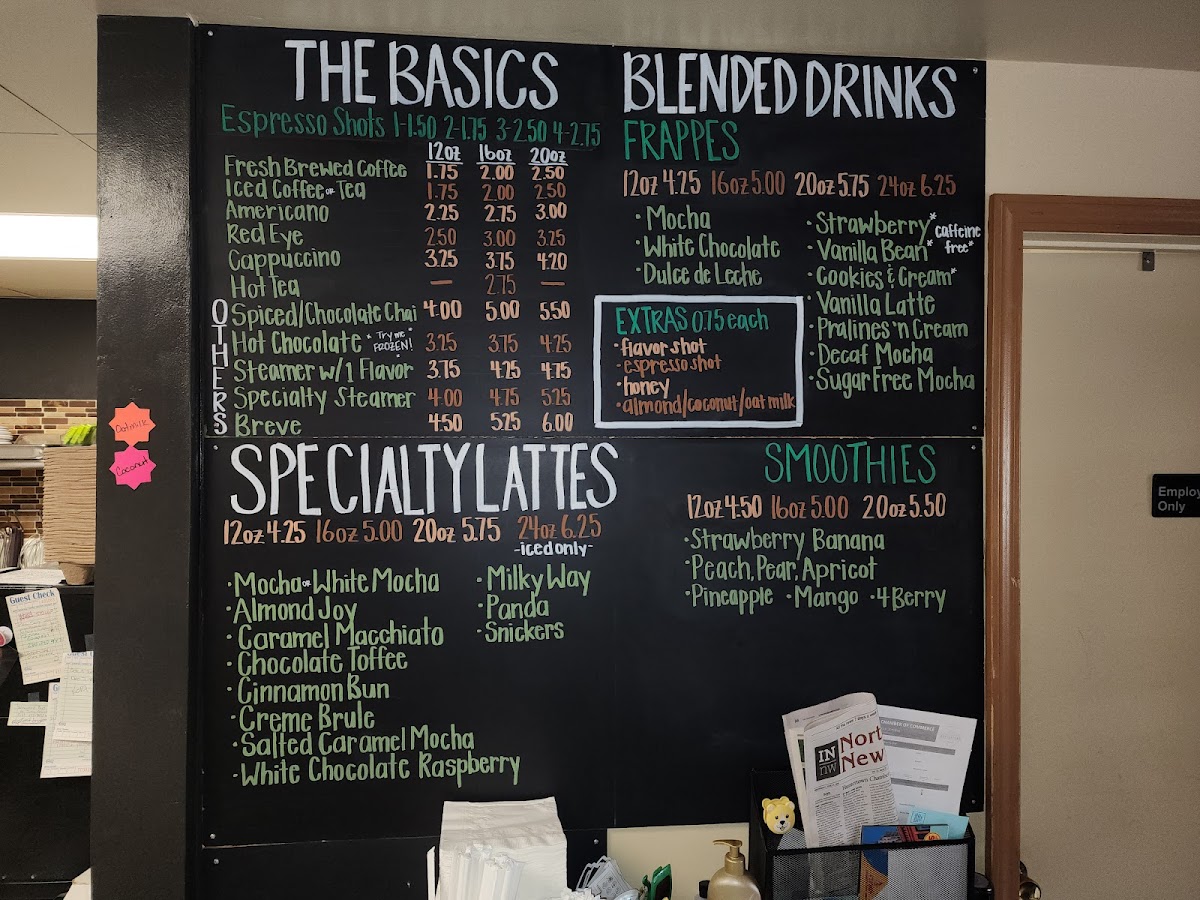 THE BASICS
Espresso Shots 1-1.50 2-1.75 3-2.50 4-2.75
12oz 16oz 20oz
Fresh Brewed Coffee 1.75 2.00 2.50
Iced Coffee or Tea 1.75 2.00 2.50
Americano 2.25 2.75 3.00
Red Eye 2.50 3.00 3.25
Cappuccino 3.25 3.75 4.20
Hot Tea — 2.75 —
OTHERS
Spiced/Chocolate Chai 4.00 5.00 5.50
Hot Chocolate *Try me FROZEN!* 3.25 3.75 4.25
Steamer w/1 Flavor 3.75 4.25 4.75
Specialty Steamer 4.00 4.75 5.25
Breve 4.50 5.25 6.00
BLENDED DRINKS
FRAPPES
12oz 4.25 16oz 5.00 20oz 5.75 24oz 6.25
·Mocha
·White Chocolate
·Dulce de Leche
·Strawberry*
·Vanilla Bean*
*caffeine free*
·Cookies & Cream*
·Vanilla Latte
·Pralines 'n Cream
·Decaf Mocha
·Sugar Free Mocha
EXTRAS 0.75 each
·flavor shot
·espresso shot
·honey
·almond/coconut/oat milk
SPECIALTY LATTES
12oz 4.25 16oz 5.00 20oz 5.75 24oz 6.25
-iced only-
·Mocha or White Mocha
·Almond Joy
·Caramel Macchiato
·Chocolate Toffee
·Cinnamon Bun
·Creme Brule
·Salted Caramel Mocha
·White Chocolate Raspberry
·Milky Way
·Panda
·Snickers
SMOOTHIES
12oz 4.50 16oz 5.00 20oz 5.50
·Strawberry Banana
·Peach, Pear, Apricot
·Pineapple ·Mango ·4 Berry
Oatmilk
Coconut
Guest Check
Employ
Only
IN
nw
Nort
New
CHAMBER OF COMMERCE